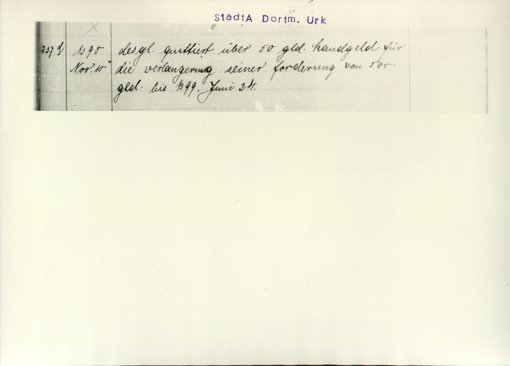 StadtA Dortm. Urk
1395 desgl. quittiert über 50 gld. handgeld für
Nov. 10 die verlängerung seiner forderung von 500
gld. bis 1399. Juni 24.